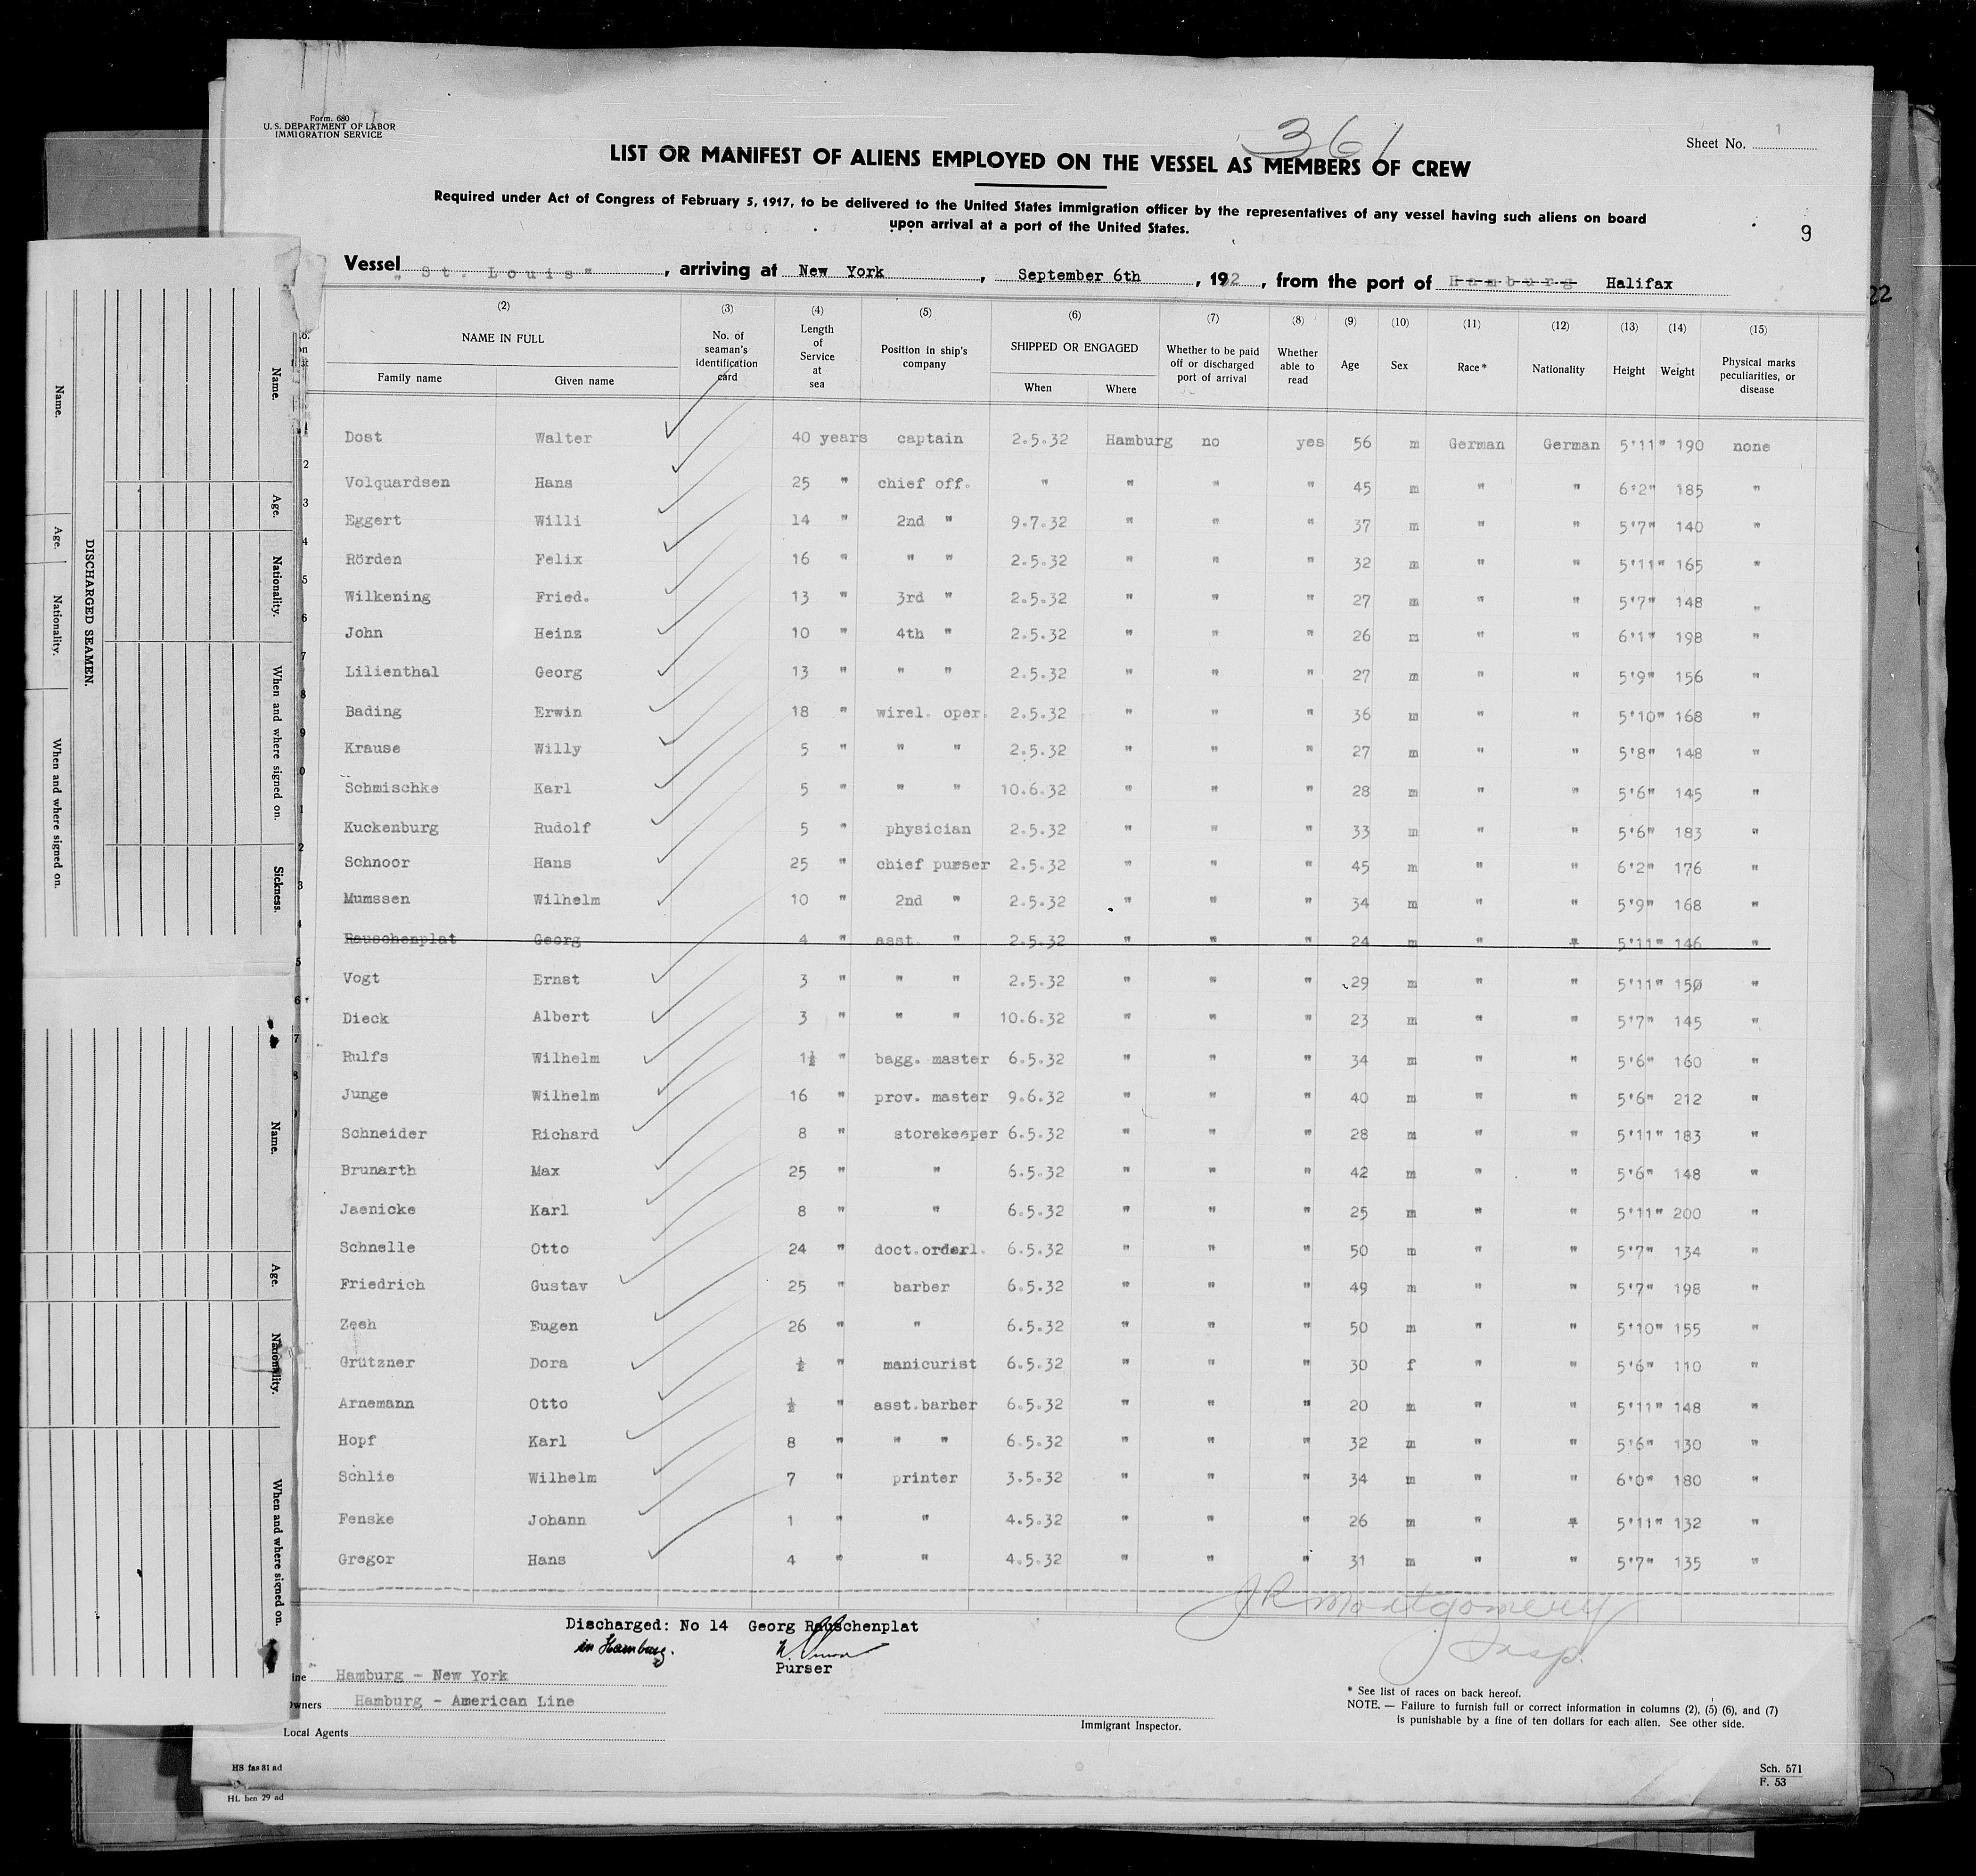 Form. 680
U. S. DEPARTMENT OF LABOR
IMMIGRATION SERVICE
361
Sheet No. 1
LIST OR MANIFEST OF ALIENS EMPLOYED ON THE VESSEL AS MEMBERS OF CREW
Required under Act of Congress of February 5, 1917, to be delivered to the United States immigration officer by the representatives of any vessel having such aliens on board
upon arrival at a port of the United States.
9
Vessel "St. Louis", arriving at New York, September 6th, 1932, from the port of Hamburg Halifax
22
(2) (3) (4) (5) (6) (7) (8) (9) (10) (11) (12) (13) (14) (15)
NAME IN FULL No. of seaman's identification card Length of Service at sea Position in ship's company SHIPPED OR ENGAGED Whether to be paid off or discharged port of arrival Whether able to read Age Sex Race* Nationality Height Weight Physical marks peculiarities, or disease
Family name Given name When Where
1 Dost Walter 40 years captain 2.5.32 Hamburg no yes 56 m German German 5'11" 190 none
2 Volquardsen Hans 25 " chief off. " " " " 45 m " " 6'2" 185 "
3 Eggert Willi 14 " 2nd " 9.7.32 " " " 37 m " " 5'7" 140 "
4 Rörden Felix 16 " " " 2.5.32 " " " 32 m " " 5'11" 165 "
5 Wilkening Fried. 13 " 3rd " 2.5.32 " " " 27 m " " 5'7" 148 "
6 John Heinz 10 " 4th " 2.5.32 " " " 26 m " " 6'1" 198 "
7 Lilienthal Georg 13 " " " 2.5.32 " " " 27 m " " 5'9" 156 "
8 Bading Erwin 18 " wirel. oper. 2.5.32 " " " 36 m " " 5'10" 168 "
9 Krause Willy 5 " " " 2.5.32 " " " 27 m " " 5'8" 148 "
0 Schmischke Karl 5 " " " 10.6.32 " " " 28 m " " 5'6" 145 "
1 Kuckenburg Rudolf 5 " physician 2.5.32 " " " 33 m " " 5'6" 183 "
2 Schnoor Hans 25 " chief purser 2.5.32 " " " 45 m " " 6'2" 176 "
3 Mumssen Wilhelm 10 " 2nd " 2.5.32 " " " 34 m " " 5'9" 168 "
4 Rauschenplat Georg 4 " asst. " 2.5.32 " " " 24 m " " 5'11" 146 "
5 Vogt Ernst 3 " " " 2.5.32 " " " 29 m " " 5'11" 150 "
6 Dieck Albert 3 " " " 10.6.32 " " " 23 m " " 5'7" 145 "
7 Rulfs Wilhelm 1½ " bagg. master 6.5.32 " " " 34 m " " 5'6" 160 "
8 Junge Wilhelm 16 " prov. master 9.6.32 " " " 40 m " " 5'6" 212 "
Schneider Richard 8 " storekeeper 6.5.32 " " " 28 m " " 5'11" 183 "
Brunarth Max 25 " " 6.5.32 " " " 42 m " " 5'6" 148 "
Jaenicke Karl 8 " " 6.5.32 " " " 25 m " " 5'11" 200 "
Schnelle Otto 24 " doct.orderl. 6.5.32 " " " 50 m " " 5'7" 134 "
Friedrich Gustav 25 " barber 6.5.32 " " " 49 m " " 5'7" 198 "
Zeeh Eugen 26 " " 6.5.32 " " " 50 m " " 5'10" 155 "
Grützner Dora ½ " manicurist 6.5.32 " " " 30 f " " 5'6" 110 "
Arnemann Otto ½ " asst.barber 6.5.32 " " " 20 m " " 5'11" 148 "
Hopf Karl 8 " " " 6.5.32 " " " 32 m " " 5'6" 130 "
Schlie Wilhelm 7 " printer 3.5.32 " " " 34 m " " 6'0" 180 "
Fenske Johann 1 " " 4.5.32 " " " 26 m " " 5'11" 132 "
Gregor Hans 4 " " 4.5.32 " " " 31 m " " 5'7" 135 "
J R Montgomery
Insp.
Discharged: No 14 Georg Rauschenplat
in Hamburg.
Purser
ine Hamburg - New York
wners Hamburg - American Line
Local Agents
Immigrant Inspector.
* See list of races on back hereof.
NOTE. — Failure to furnish full or correct information in columns (2), (5) (6), and (7)
is punishable by a fine of ten dollars for each alien. See other side.
H8 fas 81 ad
HL hen 29 ad
Sch. 571
F. 53
DISCHARGED SEAMEN.
Name. Age. Nationality. When and where signed on.
Name. Age. Nationality. When and where signed on. Sickness.
Name. Age. Nationality. When and where signed on.